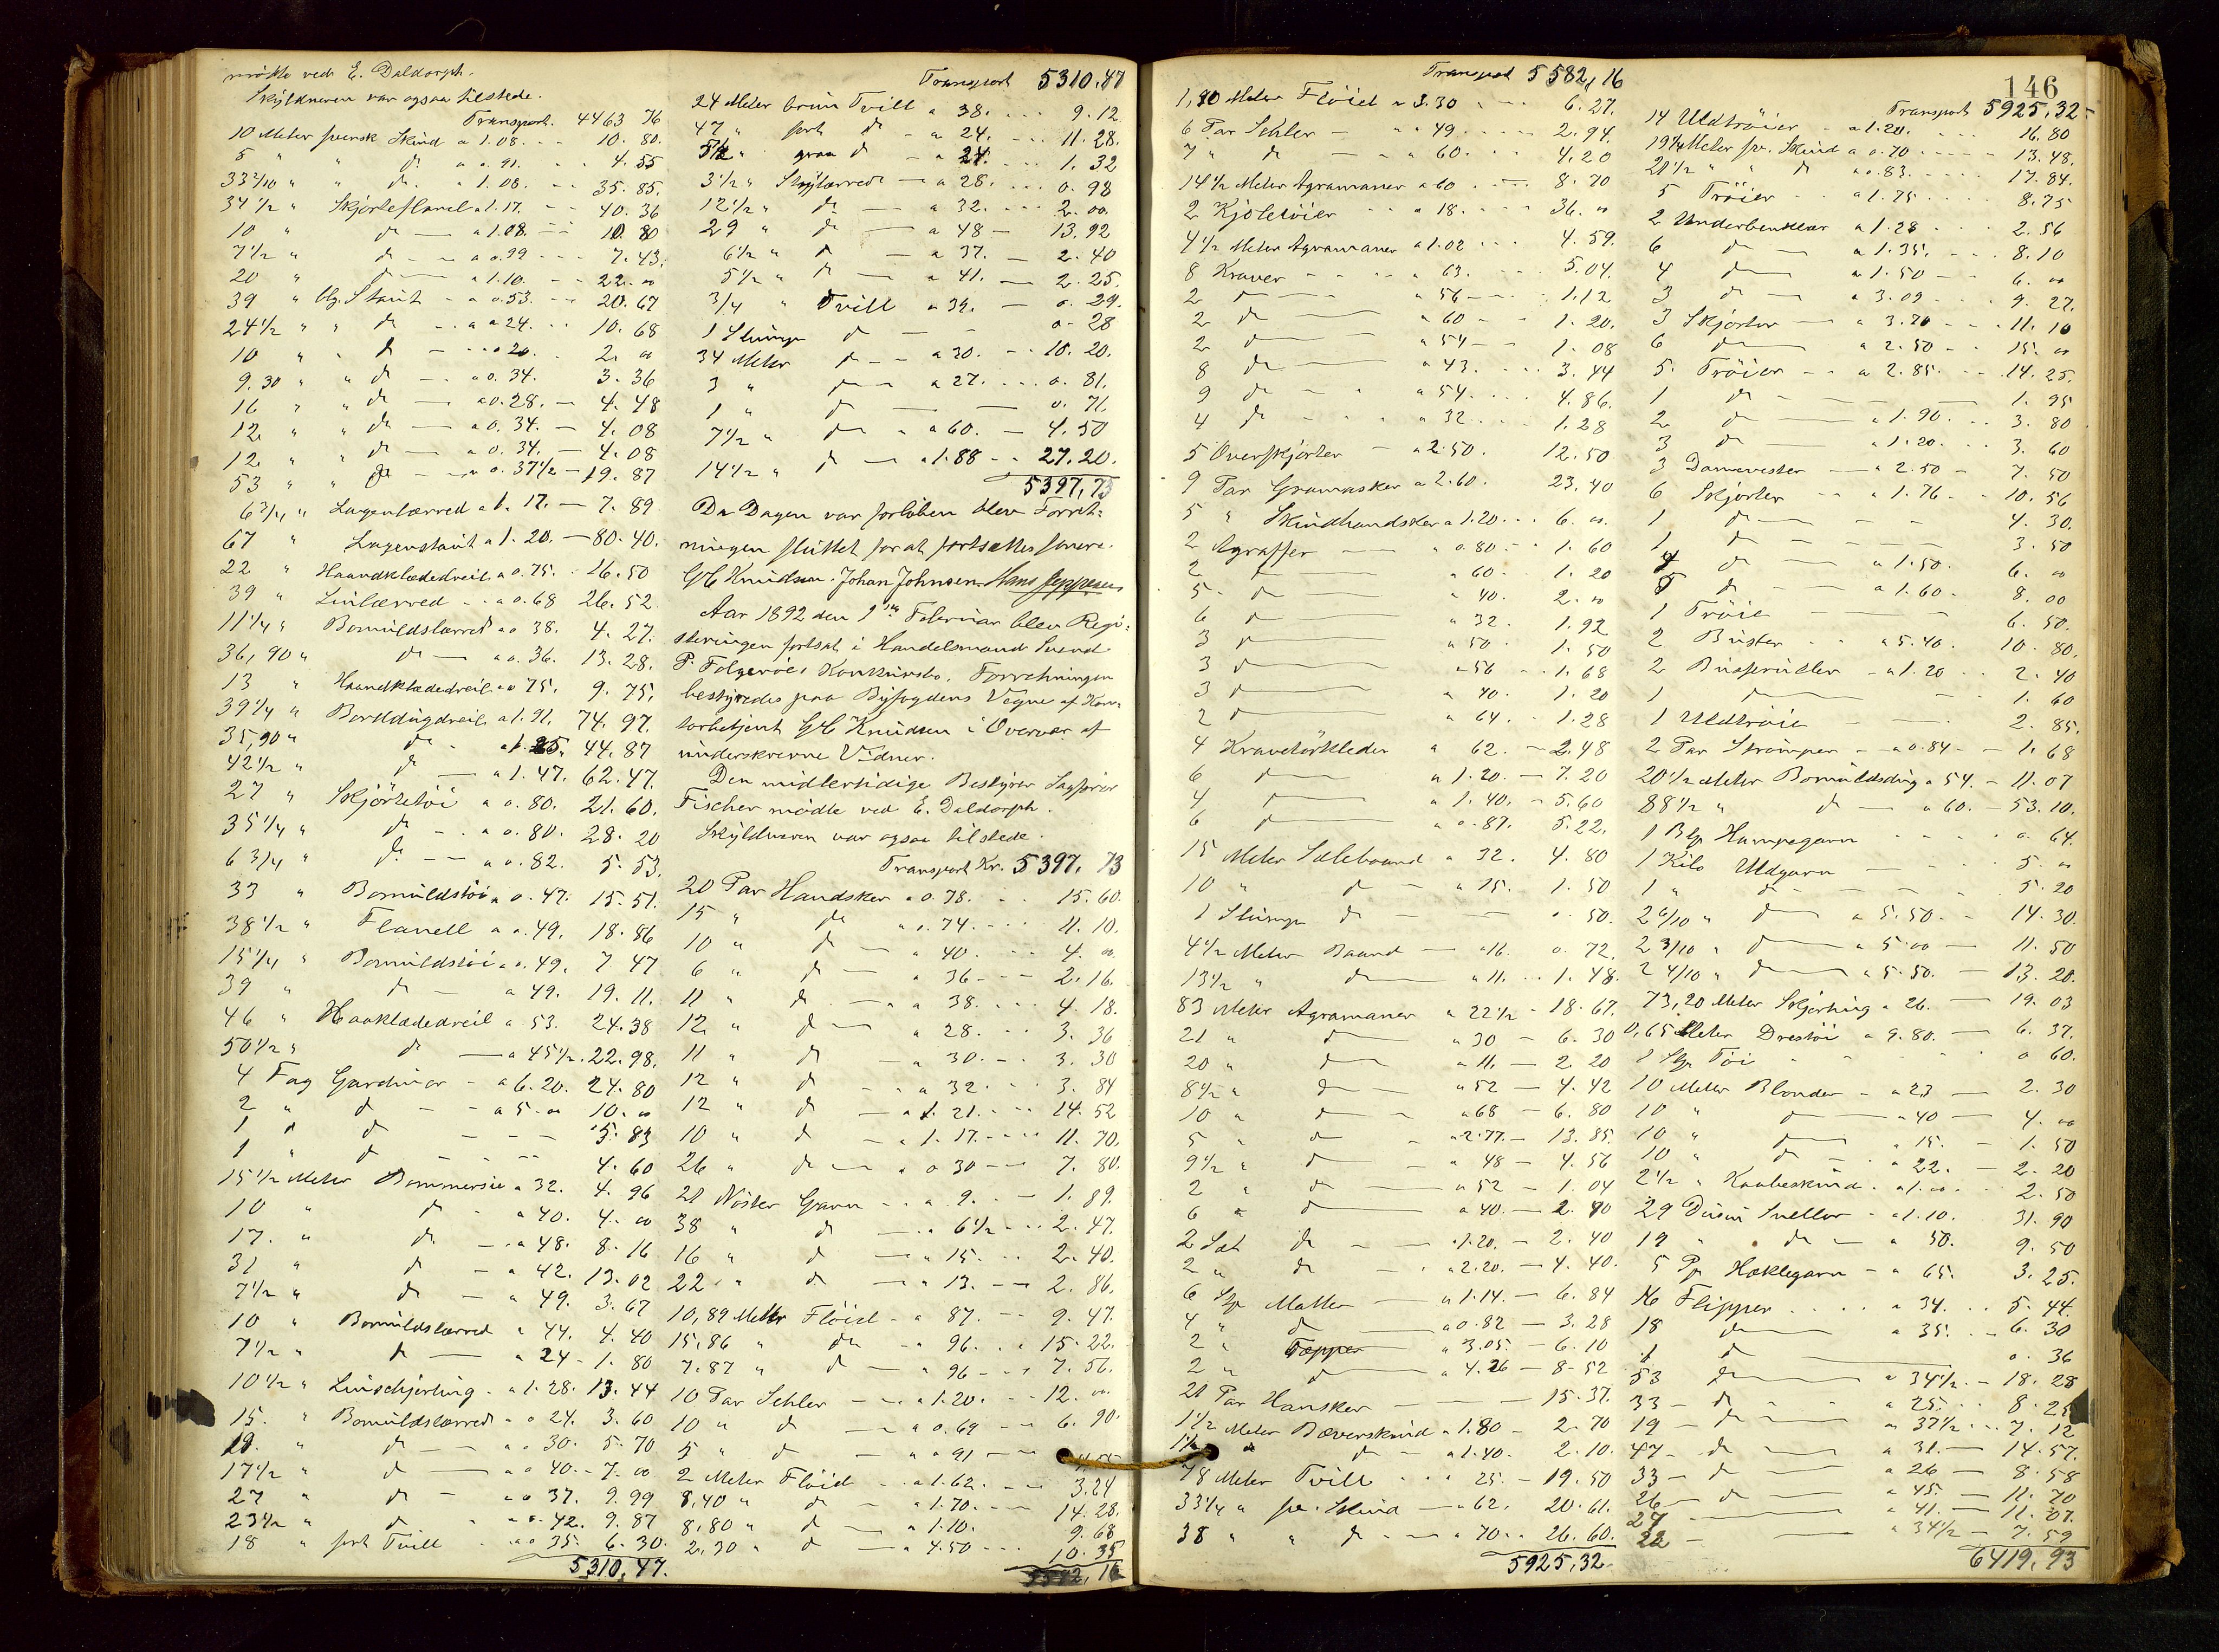 mødte ved E. Daldorph.
Skyldneren var ogsaa tilstede.
Transport. 4463 76
10 Meter svensk Skind a 1.08. 10. 80.
5 " " do a 0.91. 4. 55
33 2/10 " " do a 1.08. 35. 85.
34 1/2 " Skjorteflanel a 1.17. 40. 36
10 " do a 1.08. 10. 80
7 1/2 " do a 0.99 7. 43.
20 " do a 1.10. 22. 00
39 " blg. Stout a 0.53. 20. 67
24 1/2 " " do a 24. 10. 68
10 " " do a 20. 2. 00
9.30 " " do a 0.34. 3. 36
16 " " do a 0.28. 4. 48
12 " " do a 0.34. 4. 08
12 " " do a 0.34. 4. 08
53 " " do a 0.37 1/2 19. 87
6 3/4 " Lagenlærred a 1.17. 7. 89
67 " Lagenstout a 1.20. 80. 40.
22 " Haandklædedreil a 0.75. 16. 50
39 " Linlærred a 0.68 26. 52
11 1/4 " Bomuldslærred a 0 38. 4. 27.
36,90 " do a 0.36. 13. 28.
13 " Haandklædedreil a 0 75. 9. 75.
39 1/4 " Borddugdreil a 1.91. 74. 97.
35,90 " do a 1.25. 44. 87
42 1/2 " do a 1.47. 62. 47.
27 " Skjörtetöi a 0.80. 21. 60.
35 1/4 " do a 0.80. 28. 20
6 3/4 " do a 0.82. 5. 53.
33 " Bomuldstöi a 0.47. 15. 51.
38 1/2 " Flanell a 0.49. 18. 86
15 1/4 " Bomuldstöi a 0.49. 7 47
39 " do a 49. 19. 11.
46 " Haaklædedreil a 53. 24. 38
50 1/2 " do a 45 1/2. 22. 98.
4 Fag Gardiner a 6.20. 24. 80
2 " do a 5.00 10. 00
1 " do 5. 83
1 " do 4. 60
15 1/2 Meter Bommersie a 32. 4. 96
10 " do a 40. 4. 00
17. " do a 48. 8. 16
31 " do a 42. 13. 02
7 1/2 " do a 49. 3. 67
10 " Bomuldslærred a 44. 4. 40
7 1/2 " do a 24 1. 80
10 1/2 " Linschjerting a 1.28. 13. 44
15. " Bomuldslærred a 0 24. 3. 60
19. " do a 0 30. 5. 70
17 1/2 " do a 0 40. 7. 00
27 " do a 0 37. 9. 99
23 1/2 " do a 0.42. 9. 87
18 " sort Tvill a 0 35. 6. 30.
5310.47.
Transport 5310.47
24 Meter brun Tvill a 38. 9. 12
47 " sort do a 24. 11. 28.
5 1/2 " graa do a 24. 1. 32
3 1/2 " Skylærred a 28. 0. 98
12 1/2 " do a 32. 2. 00.
29 " do a 48 13. 92
6 1/2 " do a 37. 2. 40
5 1/2 " do a 41. 2. 25.
3/4 " Tvill a 39. 0. 29.
1 Stump do 0. 28
34 Meter do a 30. 10. 20.
3 " do a 27. 0. 81.
1 " do 0. 71.
7 1/2 " do a 60. 4. 50
14 1/2 " do a 1.88 27. 20.
5397,73
Da Dagen var forløben blev Forret-
ningen sluttet for at fortsættes senere.
G C Knudsen. Johan Johnsen. Hans Jeppesen
Aar 1892 den 9de Februar blev Regi-
streringen fortsat i Handelsmand Svend
P. Folgerøes Konkursbo. Forretningen
bestyredes paa Byfogdens Vegne af Kon-
torbetjent G C Knudsen i Overvær af
underskrevne Vidner.
Den midlertidige Bestyrer Sagfører
Fischer mødte ved E. Daldorph.
Skyldneren var ogsaa tilstede.
Transport Kr. 5397. 73
20 Par Handsker a 0.78. 15. 60.
15 " do a 0.74. 11. 10.
10 " do a 40 4. 00.
6 " do a 36 2. 16.
11 " do a 38. 4. 18.
12 " do a 28. 3. 36
11 " do a 30. 3. 30
12 " do a 32 3. 84
12 " do a 1.21. 14. 52
10 " do a 1.17. 11. 70.
26 " do a 0 30 7. 80.
21 Nöster Garn a 9. 1. 89.
38 " do a 6 1/2 2. 47.
16 " do a 15. 2. 40.
22 " do a 13. 2. 86.
10,89 Meter Flöiel a 87. 9. 47.
15,86 " do a 96. 15. 22.
7.87 " do a 96 7. 56.
10 Par Sehler a 1.20. 12. 00
10 " do a 0.69 6. 90.
5 " do a 91
2 Meter Flöiel a 1.62. 3.24
8,40 " do a 1.70. 14. 28.
8,80 " do a 1.10. 9. 68
2,30 " do a 4.50 10. 35
5582,16
Transport 5582,16
1,90 Meter Flöiel a 3.30 6. 27.
6 Par Sehler a 49. 2. 94.
7 " do a 60. 4. 20
14 1/2 Meter Agramaner a 60 8. 70
2 Kjoletöier a 18. 36. 00
4 1/2 Meter Agramaner a 1.02 4. 59.
8 Kraver a 63. 5. 04.
2 do a 56 1. 12
2 do a 60 1. 20.
2 do a 54 1. 08
8 do a 43. 3. 44
9 do a 54. 4. 86.
4 do a 32 1. 28
5 Overskjorter a 2.50. 12. 50
9 Par Gramasker a 2.60. 23. 40
5 " Skindhandsker a 1.20. 6. 00.
2 Agraffer a 0.80. 1. 60
2 do a 60. 1. 20
5 do a 40. 2. 00
6 do a 32. 1. 92
3 do a 50. 1. 50
3 do a 56 1. 68
3 do a 40. 1. 20
2 do a 64. 1. 28
4 Kravetörkleder a 62. 2. 48
6 do a 1.20. 7. 20
4 do a 1.40. 5. 60
6 do a 0.87. 5. 22.
15 Meter Selebaand a 32. 4. 80
10 " do a 15. 1. 50
1 Stump do 0. 50.
4 1/2 Meter Baand a 16. 0. 72.
13 1/2 " do a 11. 1. 48.
83 Meter Agramaner a 22 1/2 18. 67.
21 " do a 30 6. 30
20 " do a 11. 2. 20
8 1/2 " do a 52 4. 42
10 " do a 68 6. 80
5 " do a 2.77. 13. 85.
9 1/2 " do a 48 4. 56
2 " do a 52 1. 04
6 " do a 40. 2. 40
2 Sæt do a 1.20. 2. 40
2 " do a 2.20. 4. 40.
6 Stp Matter a 1.14. 6. 84
4 " do a 0.82 3. 28
2 " Tæpper a 3.05. 6. 10
2 " do a 4.26 8. 52
21 Par Hansker 15. 37.
1 1/2 Meter Bæverskind a 1.80 2. 70
1 1/2 " do a 1.40. 2. 10.
78 Meter Tvill a 25. 19. 50
33 1/4 " sv. Skind a 62. 20. 61.
38 " " do a 70. 26. 60.
5925,32.
146
Transport 5925,32
14 Uldtröier a 1.20. 16. 80
19 1/4 Meter sv. Skind a 0.70 13. 48.
21 1/2 " " do a 0.83. 17. 84.
5 Tröier a 1.75 8. 75
2 Underbenklær a 1.28 2. 56
6 do a 1.35. 8. 10
4 do a 1.50 6. 00
3 do a 3.09 9. 27.
3 Skjorter a 3.70 11. 10
6 do a 2.50 15. 00
5. Tröier a 2.85. 14. 25.
1 do 1. 95
2 do a 1.90. 3. 80
3 do a 1.20. 3. 60
3 Damevester a 2.50 7. 50
6 Skjorter a 1.76 10. 56
1 do 4. 30.
1 do 3. 50
4 do a 1.50. 6. 00
5 do a 1.60. 8. 00
1 Tröie 6. 50.
2 Buster a 5.40. 10. 80.
2 Busseruller a 1.20 2. 40
1 do 1. 60
1 Uldtröie 2. 85.
2 Par Strömper a 0.84 1. 68
20 1/2 Meter Bomuldsdug a 54. 11. 07
88 1/2 " do a 60. 53. 10.
1 Blp Hampegarn 0. 64.
1 Kilo Uldgarn 5. 00
1 " do 5. 20
2 6/10 " do a 5.50. 14. 30.
2 3/10 " do a 5.00 11. 50
2 4/10 " do a 5.50. 13. 20.
73,20 Meter Skjerting a 26. 19. 03
0,65 Meter Drestöi a 9.80. 6. 37.
1 Stp Töi 0 60.
10 Meter Blonder a 23 2. 30
10 " do a 40 4. 00
10 " do a 15. 1. 50
10 " do a 22. 2. 20
2 1/2 " Kaabeskind a 1.00 2. 50
29 Dusin Sneller a 1.10. 31. 90
19 " do a 50. 9. 50
5 Pp Heklegarn a 65. 3. 25.
16 Flipper a 34. 5. 44.
18 do a 35. 6. 30
1 do 0. 36
53 do a 34 1/2 18. 28
33 do a 25. 8. 25
19 do a 37 1/2 7. 12
47 do a 31. 14. 57.
33 do a 26 8. 58
26 do a 45. 11. 70
27 a 41. 11. 07.
22 a 34 1/2 7. 59
6419,93